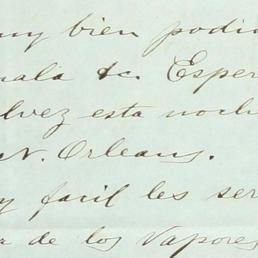 uy bien podi
mala &c. Esper
lvez esta noch
N. Orleans.
y facil les ser
a de los Vapores